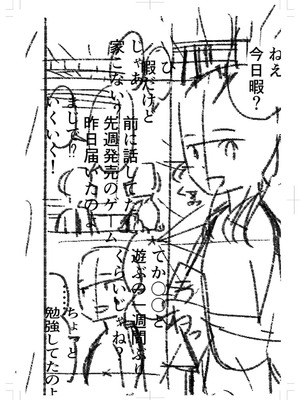 ねえ
今日暇？
ひ
暇だけど
じゃあ
家こない？
前に話してた
先週発売のゲーム
昨日届いたのよ
まじで!?
いくいく！
てか〇〇と
遊ぶの一週間ぶり
くらいじゃね？
ちょっと
勉強してたのよ